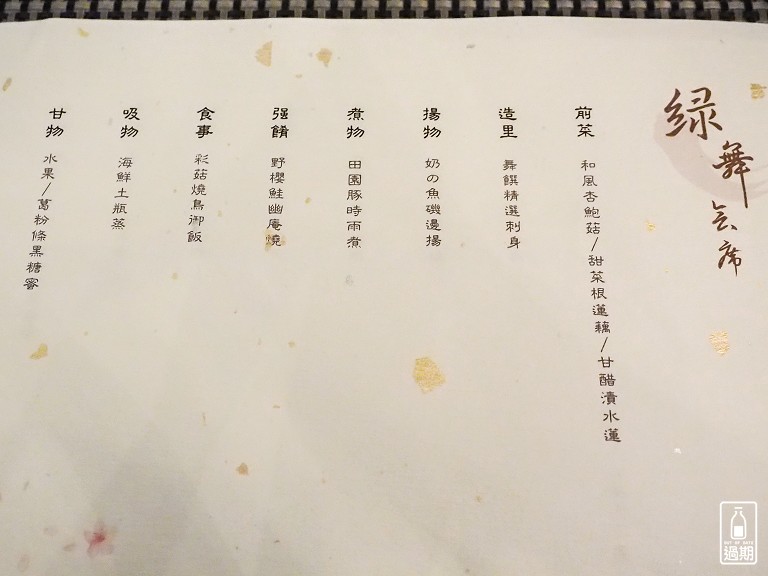 緑舞会席
前菜
和風杏鮑菇/甜菜根蓮藕/甘醋漬水蓮
造里
舞饌精選刺身
揚物
奶の魚磯邊揚
煮物
田園豚時雨煮
强肴
野櫻鮭幽庵燒
食事
彩菇燒鳥御飯
吸物
海鮮土瓶蒸
甘物
水果/葛粉條黑糖蜜
OUT OF DATE
過期